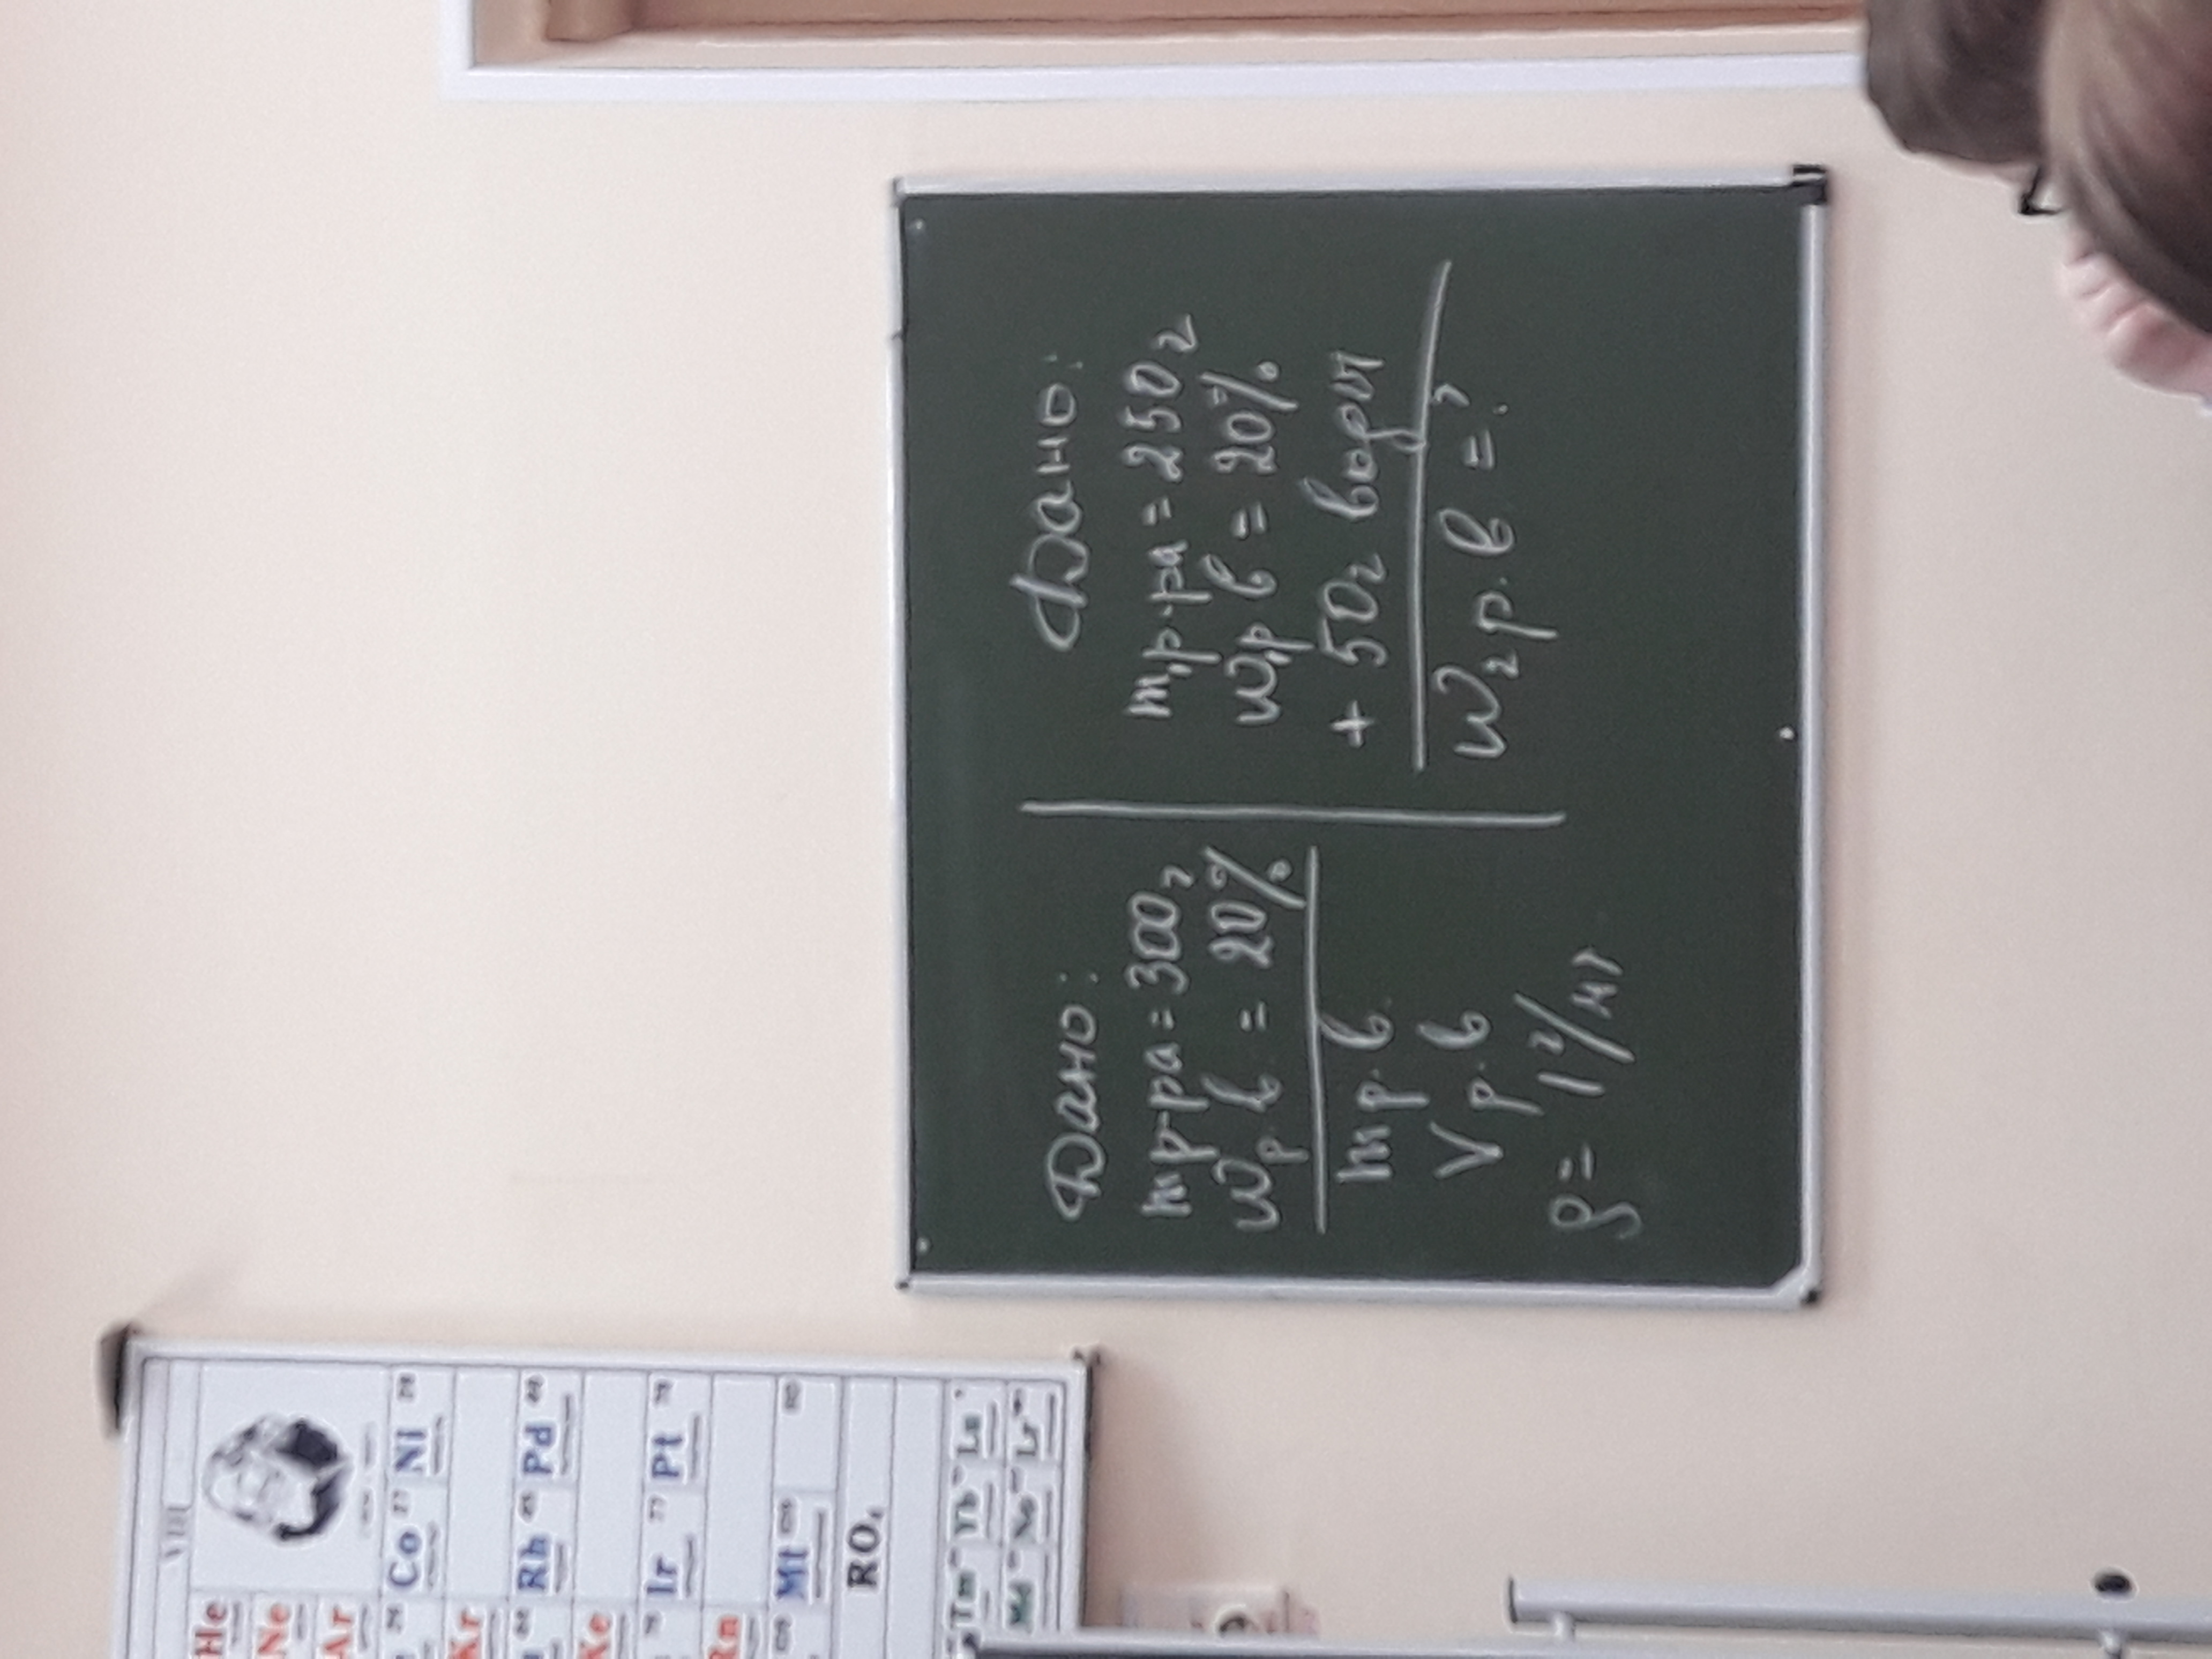 Дано:
mр-ра = 300г
Wр.в = 20%
mр.в
Vр.в
ρ = 1г/мл
Дано:
m₁р-ра = 250г
W₁р.в = 20%
+ 50г воды
W₂р.в = ?
VIII
He
Ne
Co 27 Ni 28
Ar
Kr
Rh 45 Pd
Xe
Ir 77 Pt 78
Rn
Mt
RO₄
Tm Yb Lu
Md No Lr